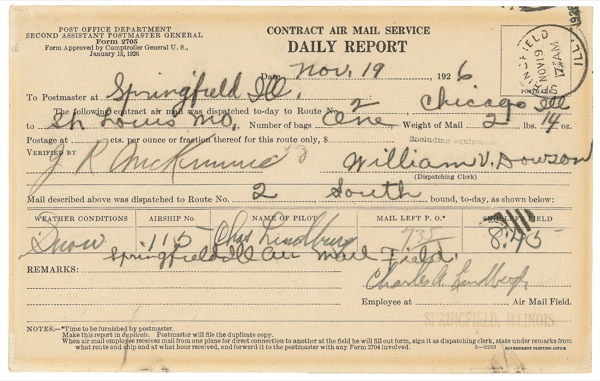 POST OFFICE DEPARTMENT
SECOND ASSISTANT POSTMASTER GENERAL
Form 2705
Form Approved by Comptroller General U. S.,
January 15, 1926
CONTRACT AIR MAIL SERVICE
DAILY REPORT
Date Nov. 19 1926
NOV 19
ILL.
To Postmaster at Springfield Ill.
The following contract air mail was dispatched to-day to Route No. 2 Chicago Ill
to St Louis Mo. Number of bags One Weight of Mail 2 lbs. 14 oz.
Postage at cts. per ounce or fraction thereof for this route only, $ (including equipment)
VERIFIED BY William V. Dowson
(Dispatching Clerk)
Mail described above was dispatched to Route No. 2 South bound, to-day, as shown below:
WEATHER CONDITIONS AIRSHIP NO. NAME OF PILOT MAIL LEFT P. O.* FIELD
Snow 115 Chas Lindberg 735 8:45
Springfield Ill Air Mail Field
REMARKS: Charles A. Lindbergh
Employee at Air Mail Field.
SPRINGFIELD, ILLINOIS.
NOTES.—*Time to be furnished by postmaster.
Make this report in duplicate. Postmaster will file the duplicate copy.
When air mail employee received mail from one plane for direct connection to another at the field he will fill out form, sign it as dispatching clerk, state under remarks from
what route and ship and at what hour received, and forward it to the postmaster with any Form 2704 involved.
5—9233 GOVERNMENT PRINTING OFFICE